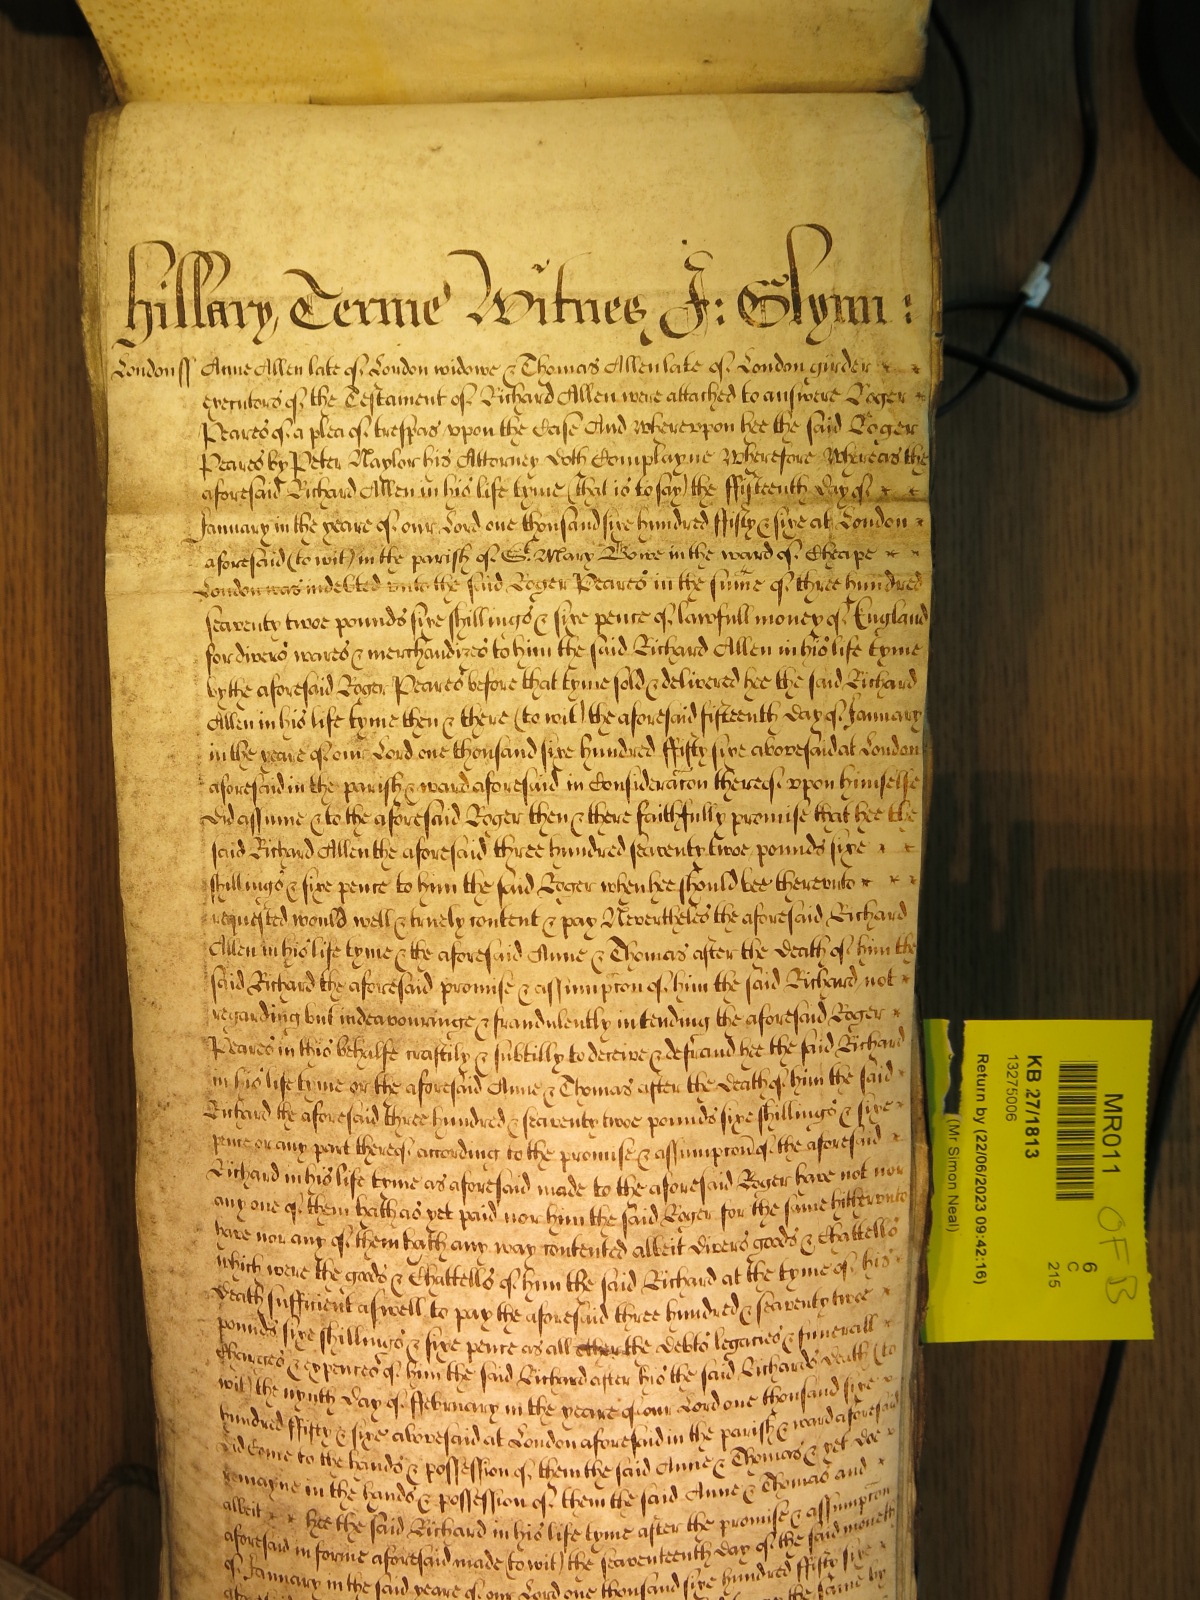 Hillary Terme Witnes J: Glynn :
London ss Anne Allen late of London widowe & Thomas Allen late of London girder
executors of the Testament of Richard Allen were attached to answere Roger
Peares of a plea of trespas vpon the Case And wherevpon hee the said Roger
Peares by Peter Naylor his Attorney doth Complayne Wherefore Whereas the
aforesaid Richard Allen in his life tyme (that is to say) the ffifteenth day of
January in the yeare of our Lord one thousand sixe hundred ffifty & sixe at London
aforesaid (to wit) in the parish of St. Mary Bowe in the ward of Cheape
London was indebted vnto the said Roger Peares in the sume of three hundred
seaventy twoe pounds sixe shillings & sixe pence of lawfull money of England
for divers wares & merchandizes to him the said Richard Allen in his life tyme
by the aforesaid Roger Peares before that tyme sold & delivered hee the said Richard
Allen in his life tyme then & there (to wit) the aforesaid fifteenth day of January
in the yeare of our Lord one thousand sixe hundred ffifty sixe abovesaid at London
aforesaid in the parish & ward aforesaid in Consideracon thereof vpon himselfe
did assume & to the aforesaid Roger then & there faithfully promise that hee the
said Richard Allen the aforesaid three hundred seaventy twoe pounds sixe
shillings & sixe pence to him the said Roger when hee should bee therevnto
requested would well & truely content & pay Nevertheles the aforesaid Richard
Allen in his life tyme & the aforesaid Anne & Thomas after the death of him the
said Richard the aforesaid promise & assumpcon of him the said Richard not
regarding but indeavouringe & fraudulently intending the aforesaid Roger
Peares in this behalfe craftily & subtilly to deceive & defraud hee the said Richard
in his life tyme or the aforesaid Anne & Thomas after the death of him the said
Richard the aforesaid three hundred & seaventy twoe pounds sixe shillings & sixe
pence or any part thereof according to the promise & assumpcon of the aforesaid
Richard in his life tyme as aforesaid made to the aforesaid Roger have not nor
any one of them hath as yet paid nor him the said Roger for the same hithervnto
have nor any of them hath any way contented albeit divers goods & Chattells
which were the goods & Chattells of him the said Richard at the tyme of his
death sufficient aswell to pay the aforesaid three hundred & seaventy twoe
pounds sixe shillings & sixe pence as all the debts legacies & funerall
Charges & expences of him the said Richard after his the said Richards death (to
wit) the nynth day of ffebruary in the yeare of our Lord one thousand sixe
hundred ffifty & sixe abovesaid at London aforesaid in the parish & ward aforesaid
did Come to the hands & possession of them the said Anne & Thomas & yet doe
remayne in the hands & possession of them the said Anne & Thomas and
albeit hee the said Richard in his life tyme after the promise & assumpcon
aforesaid in forme aforesaid made (to wit) the seaventeenth day of the said moneth
of January in the said yeare of our Lord one thousand sixe hundred ffifty sixe
MR011
6
C
215
OFB
KB 27/1813
13275006
Return by (22/06/2023 09:42:16)
(Mr Simon Neal)